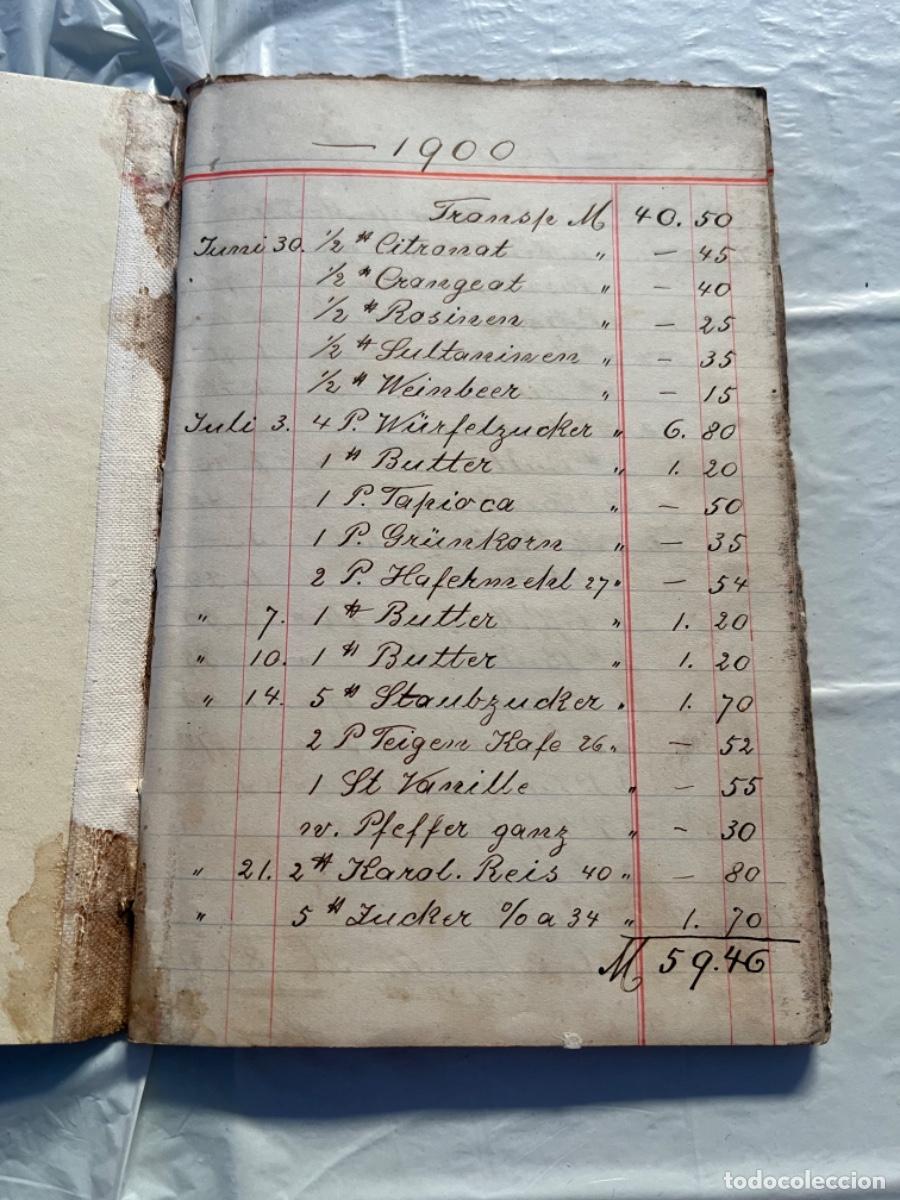 — 1900
Transp M 40.50
Juni 30. ½ ℔ Citronat " — 45
½ ℔ Orangeat " — 40
½ ℔ Rosinen " — 25
½ ℔ Sultaninen " — 35
½ ℔ Weinbeer " — 15
Juli 3. 4 P. Würfelzucker " 6. 80
1 ℔ Butter " 1. 20
1 P. Tapioca " — 50
1 P. Grünkorn " — 35
2 P. Hafermehl 27 " — 54
" 7. 1 ℔ Butter " 1. 20
" 10. 1 ℔ Butter " 1. 20
" 14. 5 ℔ Staubzucker " 1. 70
2 P Feigen Kafe 26 " — 52
1 St Vanille " — 55
w. Pfeffer ganz " — 30
" 21. 2 ℔ Karol. Reis 40 " — 80
" 5 ℔ Zucker % a 34 " 1. 70
M 59.46
todocoleccion